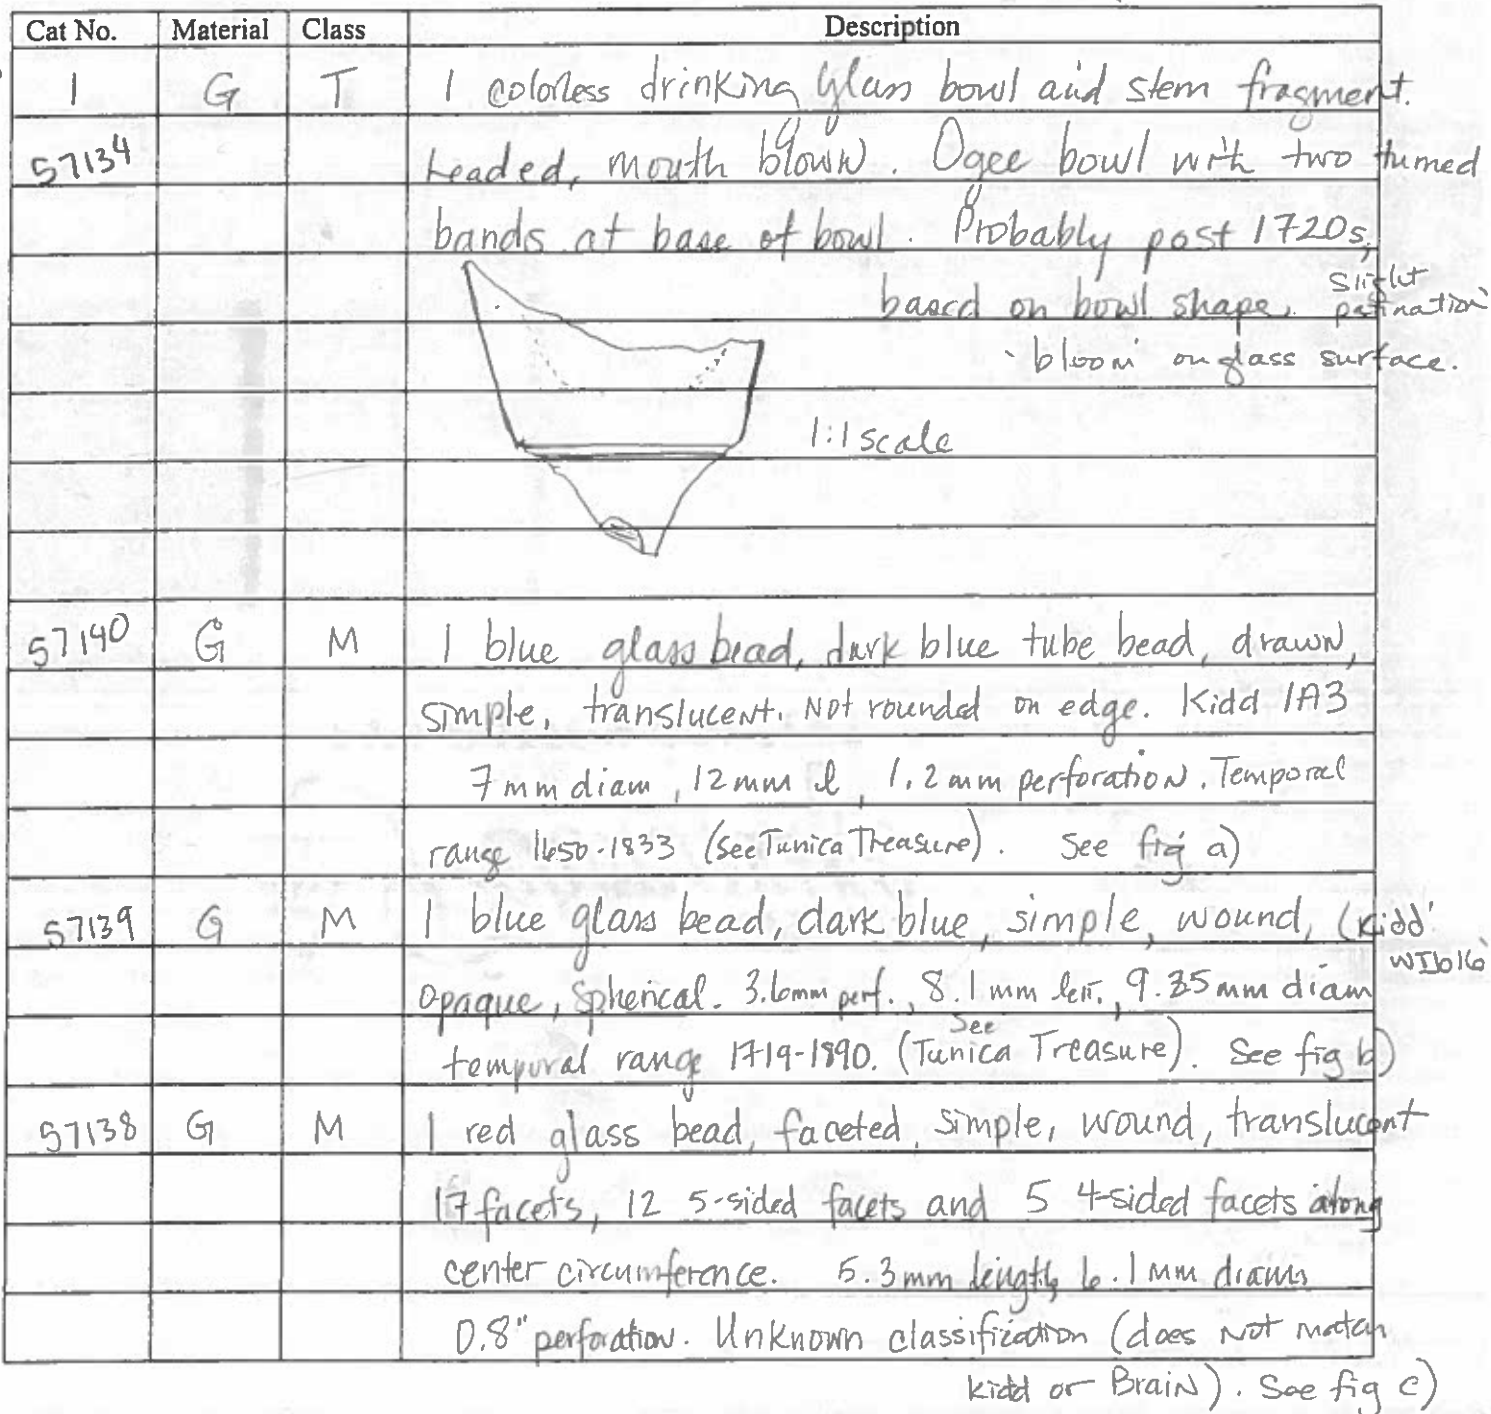 Cat No. Material Class Description
1 G T 1 colorless drinking glass bowl and stem fragment.
57134 Leaded, mouth blown. Ogee bowl with two turned
bands at base of bowl. Probably post 1720s,
based on bowl shape. Slight patination
"bloom" on glass surface.
1:1 scale
57140 G M 1 blue glass bead, dark blue tube bead, drawn,
simple, translucent. Not rounded on edge. Kidd 1A3
7 mm diam, 12 mm l, 1.2 mm perforation. Temporal
range 1650-1833 (see Tunica Treasure). See fig a)
57139 G M 1 blue glass bead, dark blue, simple, wound, (Kidd WIb16
opaque, spherical. 3.6mm perf., 8.1 mm 9.35 mm diam
temporal range 1719-1890. (See Tunica Treasure). See fig b)
57138 G M 1 red glass bead, faceted, simple, wound, translucent
17 facets, 12 5-sided facets and 5 4-sided facets along
center circumference. 5.3 mm length, 6.1 mm diam,
0.8" perforation. Unknown classification (does not match
Kidd or Brain). See fig c)